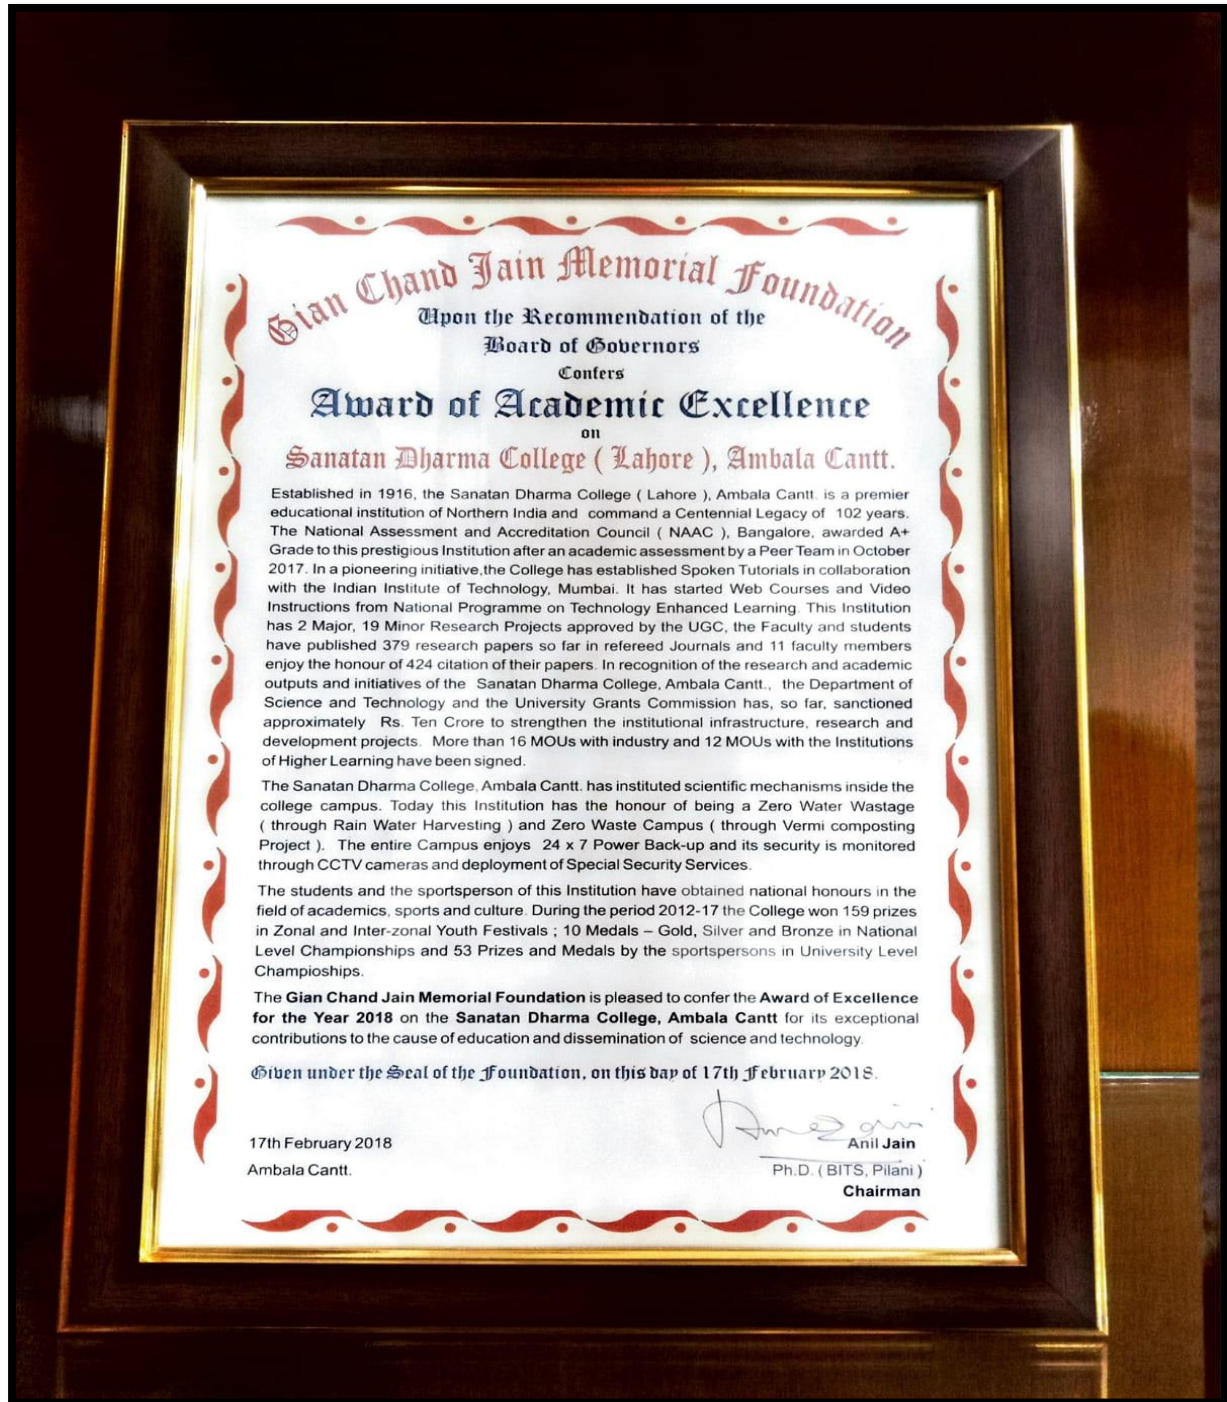 Gian Chand Jain Memorial Foundation
Upon the Recommendation of the
Board of Governors
Confers
Award of Academic Excellence
on
Sanatan Dharma College ( Lahore ), Ambala Cantt.
Established in 1916, the Sanatan Dharma College ( Lahore ), Ambala Cantt. is a premier
educational institution of Northern India and command a Centennial Legacy of 102 years.
The National Assessment and Accreditation Council ( NAAC ), Bangalore, awarded A+
Grade to this prestigious Institution after an academic assessment by a Peer Team in October
2017. In a pioneering initiative,the College has established Spoken Tutorials in collaboration
with the Indian Institute of Technology, Mumbai. It has started Web Courses and Video
Instructions from National Programme on Technology Enhanced Learning. This Institution
has 2 Major, 19 Minor Research Projects approved by the UGC, the Faculty and students
have published 379 research papers so far in refereed Journals and 11 faculty members
enjoy the honour of 424 citation of their papers. In recognition of the research and academic
outputs and initiatives of the Sanatan Dharma College, Ambala Cantt., the Department of
Science and Technology and the University Grants Commission has, so far, sanctioned
approximately Rs. Ten Crore to strengthen the institutional infrastructure, research and
development projects. More than 16 MOUs with industry and 12 MOUs with the Institutions
of Higher Learning have been signed.
The Sanatan Dharma College, Ambala Cantt. has instituted scientific mechanisms inside the
college campus. Today this Institution has the honour of being a Zero Water Wastage
( through Rain Water Harvesting ) and Zero Waste Campus ( through Vermi composting
Project ). The entire Campus enjoys 24 x 7 Power Back-up and its security is monitored
through CCTV cameras and deployment of Special Security Services.
The students and the sportsperson of this Institution have obtained national honours in the
field of academics, sports and culture. During the period 2012-17 the College won 159 prizes
in Zonal and Inter-zonal Youth Festivals ; 10 Medals – Gold, Silver and Bronze in National
Level Championships and 53 Prizes and Medals by the sportspersons in University Level
Champioships.
The Gian Chand Jain Memorial Foundation is pleased to confer the Award of Excellence
for the Year 2018 on the Sanatan Dharma College, Ambala Cantt for its exceptional
contributions to the cause of education and dissemination of science and technology.
Given under the Seal of the Foundation, on this day of 17th February 2018.
17th February 2018
Anil Jain
Ambala Cantt.
Ph.D. ( BITS, Pilani )
Chairman